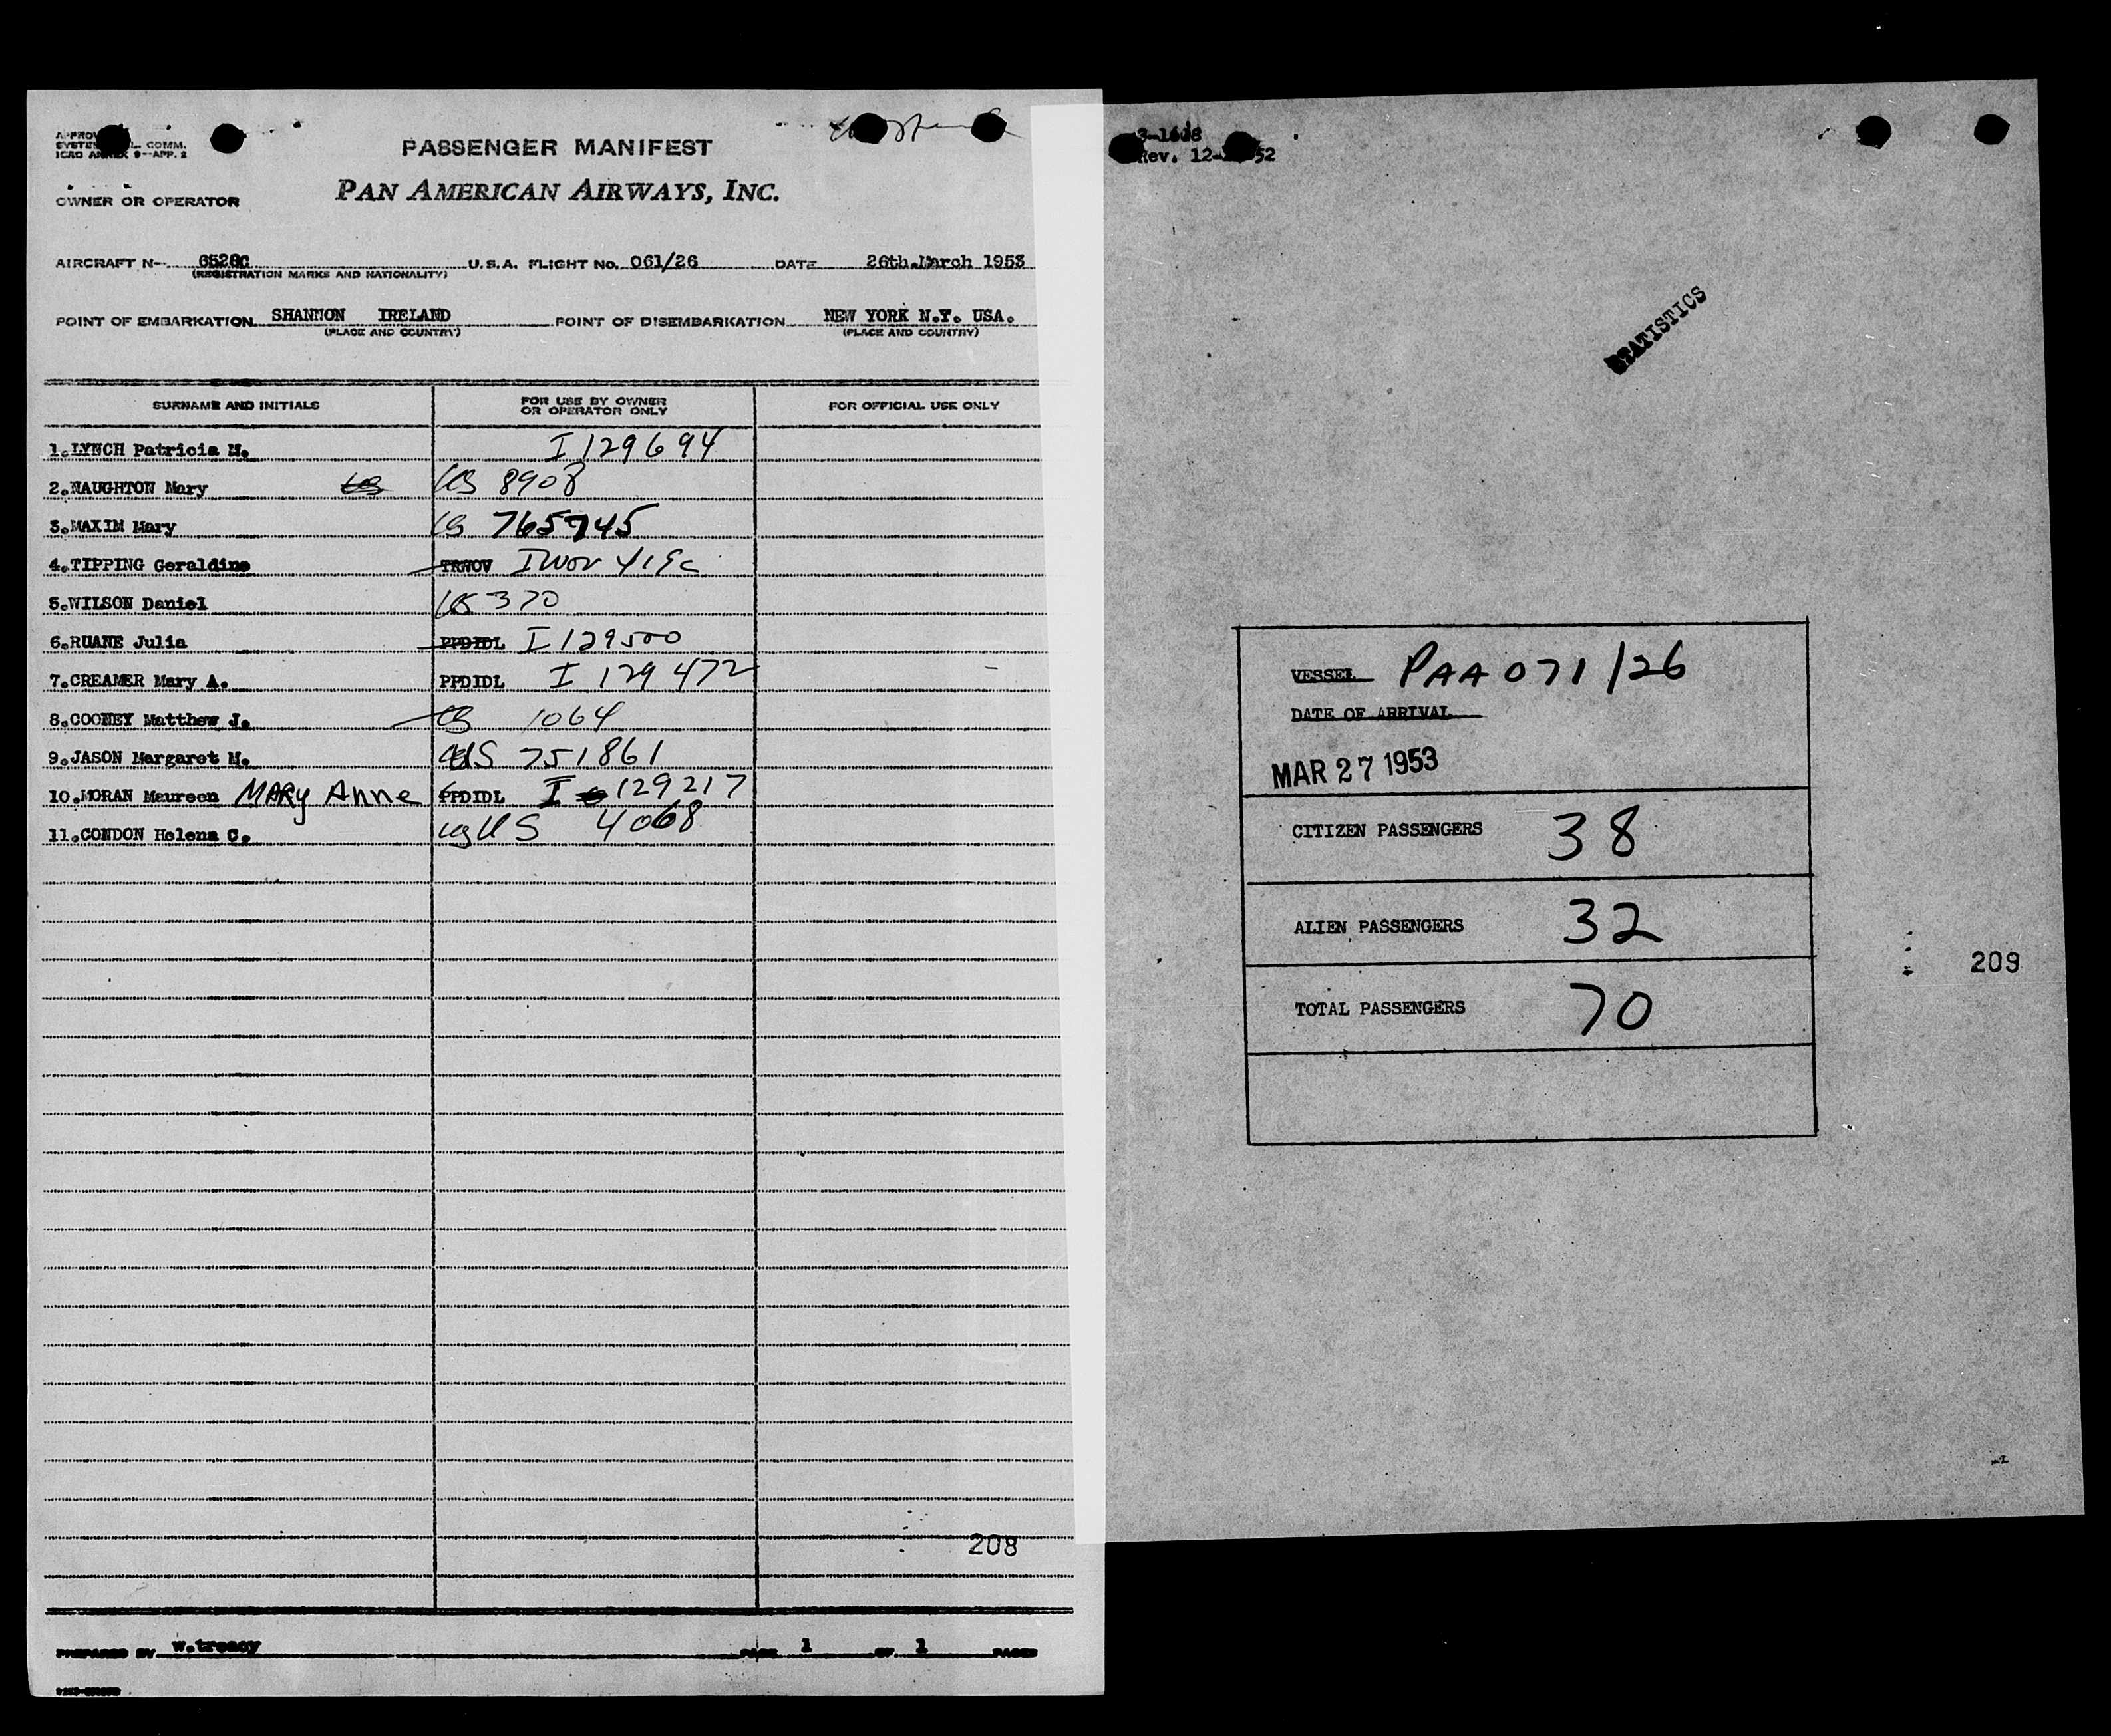 PASSENGER MANIFEST
PAN AMERICAN AIRWAYS, INC.
ICAO ANNEX 9-APP. 2
OWNER OR OPERATOR
AIRCRAFT N-- U.S.A. FLIGHT No. 061/26 DATE 26th.March 1953
(REGISTRATION MARKS AND NATIONALITY)
POINT OF EMBARKATION SHANNON IRELAND POINT OF DISEMBARKATION NEW YORK N.Y. USA.
(PLACE AND COUNTRY) (PLACE AND COUNTRY)
SURNAME AND INITIALS FOR USE BY OWNER OR OPERATOR ONLY FOR OFFICIAL USE ONLY
1.LYNCH Patricia M. I 129694
2.NAUGHTON Mary US US 8908
3.MAXIM Mary US 765745
4.TIPPING Geraldine TRWOV
5.WILSON Daniel US 370
6.RUANE Julia PPDIDL I 129500
7.CREAMER Mary A. PPDIDL I 129472
8.COONEY Matthew J. US 1064
9.JASON Margaret M. US 751861
10.MORAN Maureen MARY Anne PPDIDL I 129217
11.CONDON Helena C. US 4068
208
PREPARED BY w.treacy PAGE 1 OF 1 PAGES
Rev. 12- 52
STATISTICS
VESSEL PAA 071/26
DATE OF ARRIVAL
MAR 27 1953
CITIZEN PASSENGERS 38
ALIEN PASSENGERS 32
TOTAL PASSENGERS 70
209